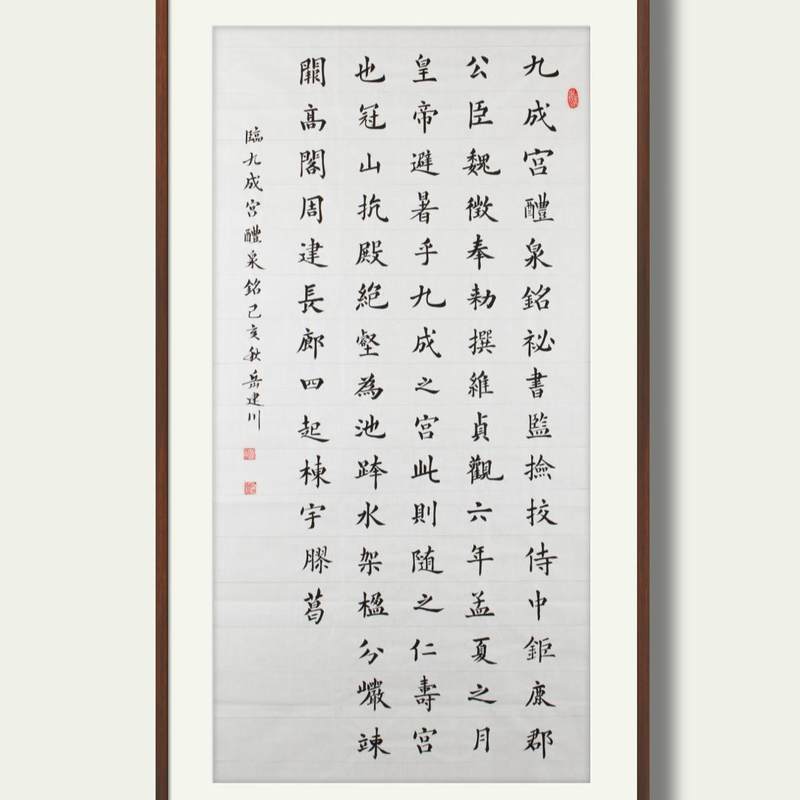 九成宮醴泉銘祕書監撿挍侍中鉅鹿郡
公臣魏徵奉勑撰維貞觀六年孟夏之月
皇帝避暑乎九成之宮此則隨之仁壽宮
也冠山抗殿絕壑為池跨水架楹分巖竦
闕高閣周建長廊四起棟宇膠葛
臨九成宮醴泉銘己亥秋岳建川